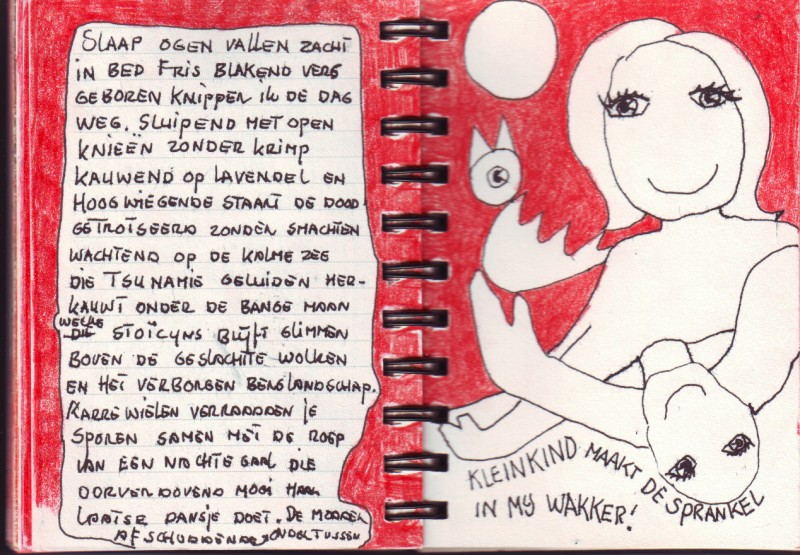 SLAAP OGEN VALLEN ZACHT
IN BED FRIS BLAKEND VERS
GEBOREN KNIPPER IK DE DAG
WEG. SLUIPEND MET OPEN
KNIEËN ZONDER KRIMP
KAUWEND OP LAVENDEL EN
HOOG WIEGENDE STAART DE DOOD
GETROTSEERD ZONDER SMACHTEN
WACHTEND OP DE KALME ZEE
DIE TSUNAMIE GELUIDEN HER-
KAUWT ONDER DE BANGE MAAN
WELKE
STOÏCYNS BLIJFT GLIMMEN
BOVEN DE GESLACHTE WOLKEN
EN HET VERBORGEN BERGLANDSCHAP.
KARREWIELEN VERRAADDEN JE
SPOREN SAMEN MET DE ROEP
VAN EEN NACHTEGAAL DIE
OORVERDOVEND MOOI HAAR
LAATSTE DANSJE DOET. DE MODDER
AFSCHUDDEND ONDERTUSSEN
KLEINKIND MAAKT DE SPRANKEL
IN MY WAKKER!